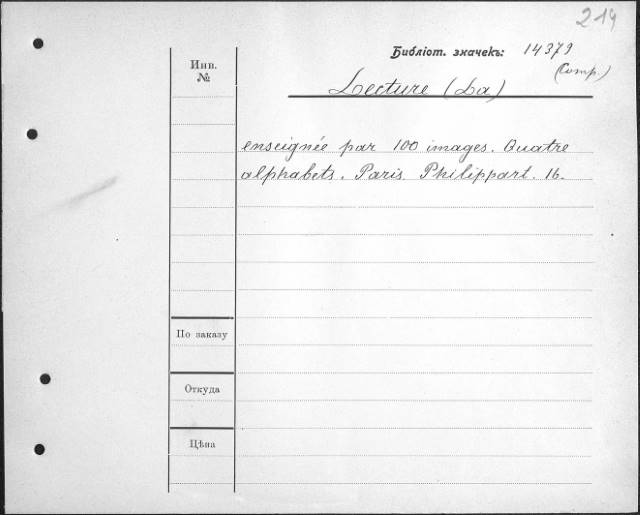 219
Библіот. значекъ: 14379
(Comp.)
Инв. №
Lecture (La)
enseignée par 100 images. Quatre
alphabets. Paris. Philippart. 16.
По заказу
Откуда
Цѣна